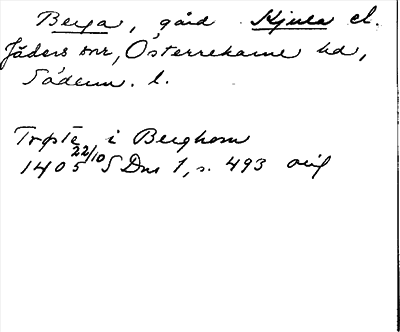 Berga, gård Kjula el.
Jäders snr, Österrekarne hd,
Söderm. l.
Torste i Berghom
1405 22/10 SDns 1, s. 493 orig